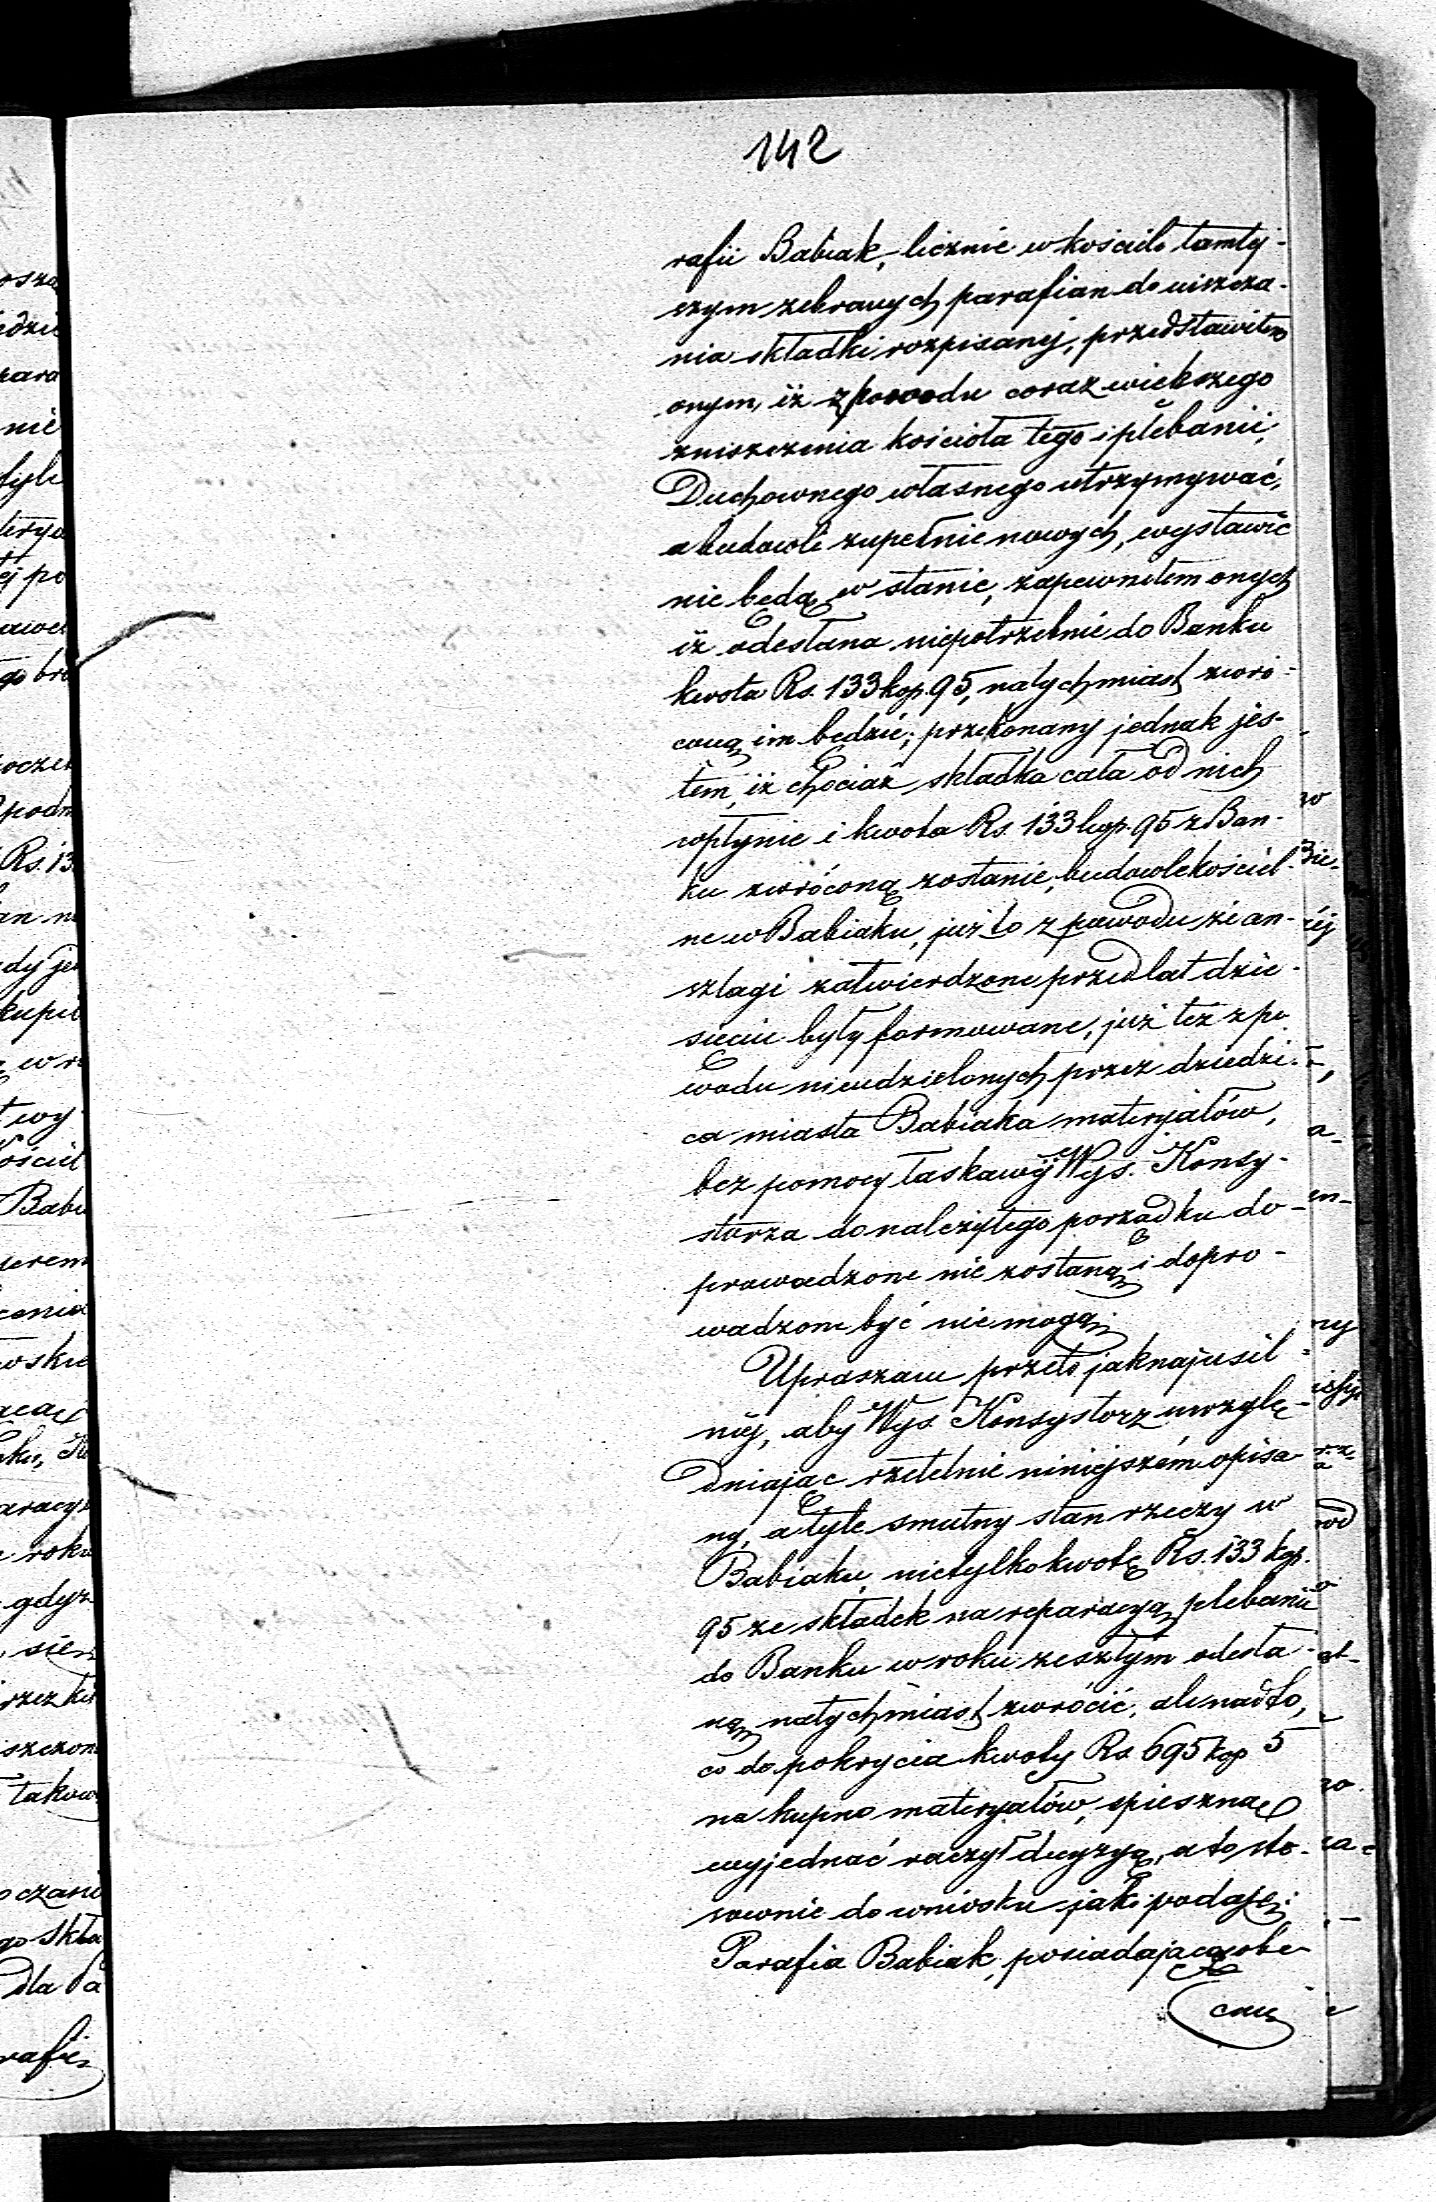 142
rafii Babiak, licznie w kościele tamtej-
szym zebranych parafian do uiszcza-
nia składki rozpisanej, przedstawiłem
onym, iż z powodu coraz większego
zniszczenia kościoła tego i plebanii,
Duchownego własnego utrzymywać,
a budowli zupełnie nowych, wystawić
nie będą w stanie, zapewniłem onych
iż odesłana niepotrzebnie do Banku
kwota Rs. 133 kop. 95, natychmiast zwró-
coną im będzie; przekonany jednak jes-
tem, iż chociaż składka cała od nich
wpłynie i kwota Rs. 133 kop. 95 z Ban-
ku zwróconą zostanie, budowle kościel-
ne w Babiaku, już to z powodu że an-
szlagi zatwierdzone przed lat dzie-
sięciu były formowane, już też z po
wodu nieudzielonych przez dziedzi-
ca miasta Babiaka materyałów,
bez pomocy łaskawej Wys. Konsy-
storza do należytego porządku do-
prowadzone nie zostaną i dopro-
wadzone być nie mogą.
Upraszam przeto jaknajusil-
niej, aby Wys. Konsystorz uwzglę-
dniając rzetelnie niniejszém opisa
ny, a tyle smutny stan rzeczy w
Babiaku, nietylko kwotę Rs. 133 kop.
95 ze składek na reparacyą plebanii
do Banku w roku zeszłym odesła-
ną natychmiast zwrócić, ale nadto,
co do pokrycia kwoty Rs 695 kop 5
na kupno materyałów, spieszną
wyjednać raczył decyzyą, a to sto-
sownie do wniosku jaki podaję:
Parafia Babiak, posiadająca obe
cnie